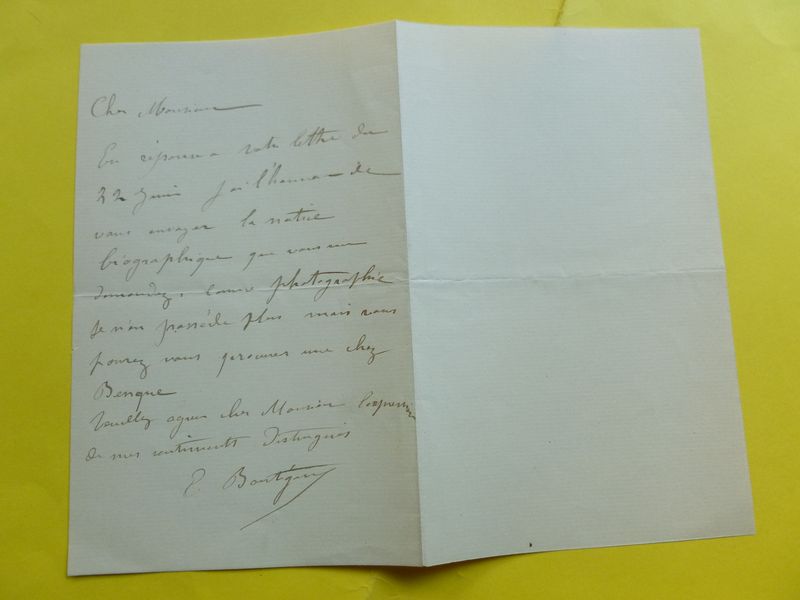 Cher Monsieur
En réponse a votre lettre du
22 Juin J'ai l'honneur de
vous envoyer la notice
biographique que vous me
demandez, comme photographie
Je n'en possède plus mais vous
pourez vous procurer une chez
Benque
Veuillez agreer cher Monsieur l'expression
de mes sentiments distingués
E.